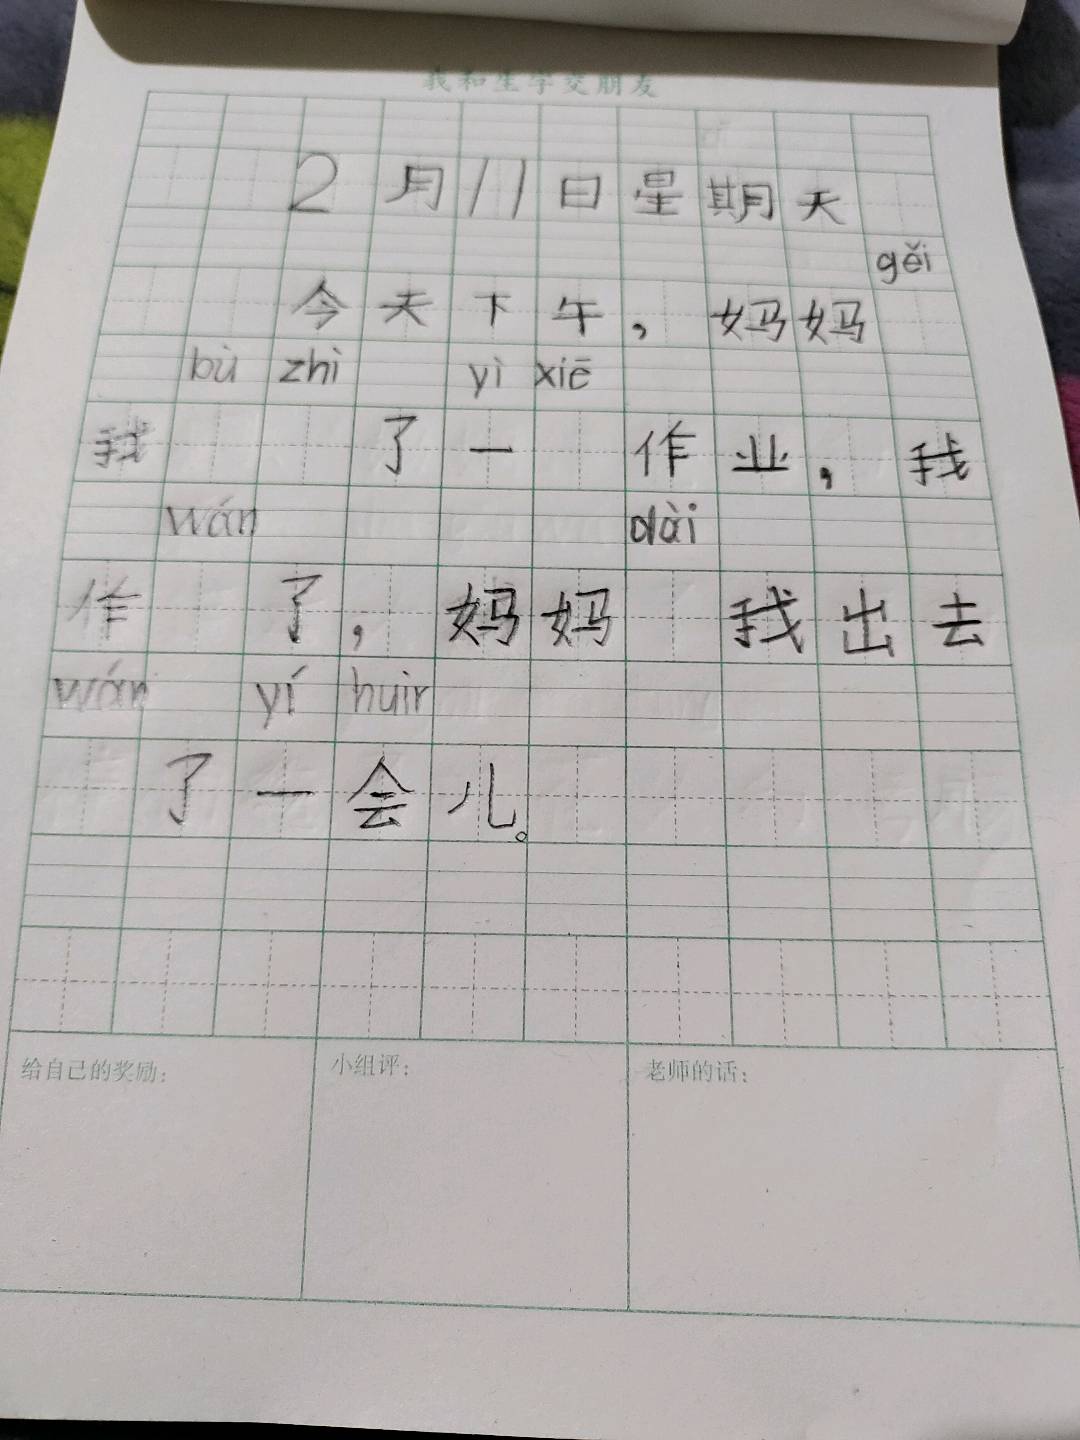 我和生字交朋友
2月11日星期天
gěi
今天下午，妈妈
bù zhì yì xiē
我 了一 作业，我
wán dài
作 了，妈妈 我出去
wán yí huìr
了一会儿。
给自己的奖励：
小组评：
老师的话：